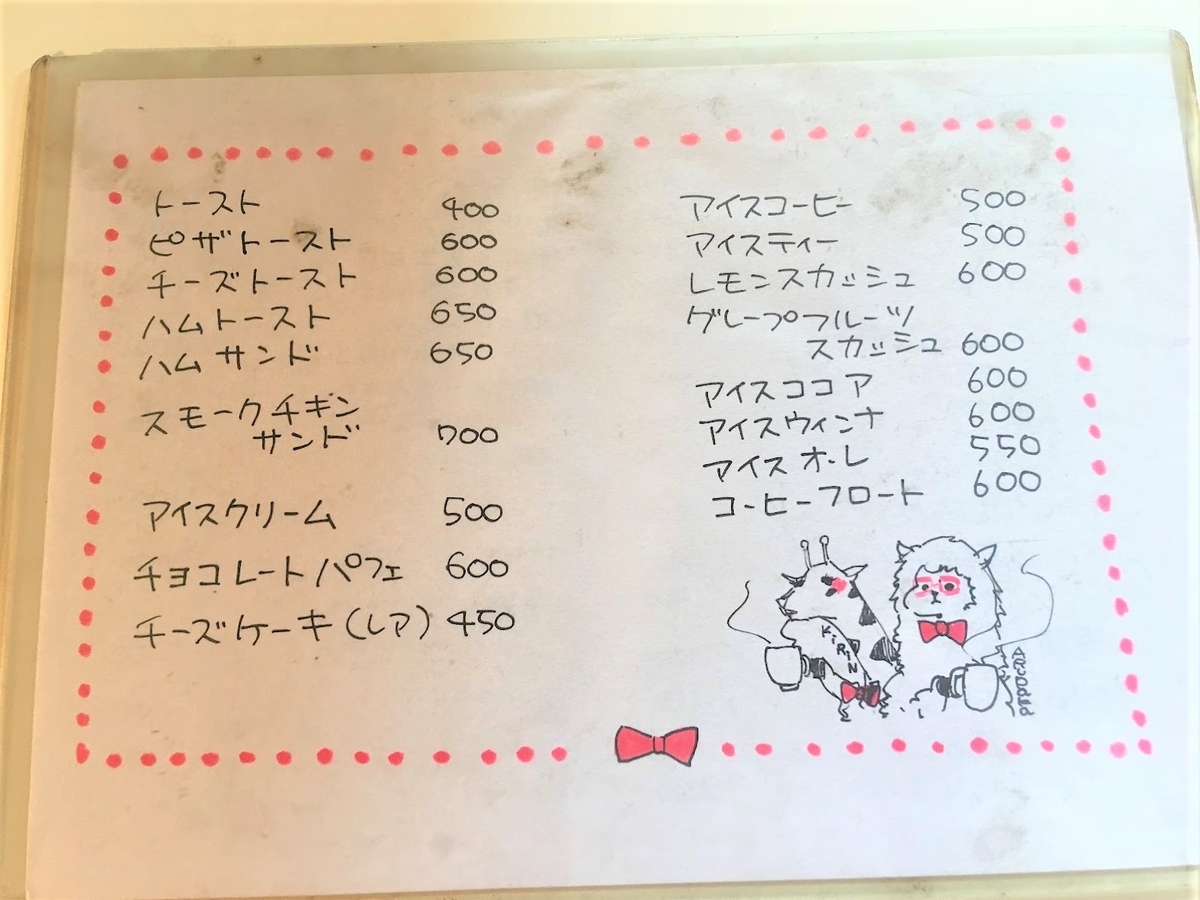 トースト 400
ピザトースト 600
チーズトースト 600
ハムトースト 650
ハムサンド 650
スモークチキン
サンド 700
アイスクリーム 500
チョコレートパフェ 600
チーズケーキ(レア) 450
アイスコーヒー 500
アイスティー 500
レモンスカッシュ 600
グレープフルーツ
スカッシュ 600
アイスココア 600
アイスウィンナ 600
アイスオ・レ 550
コーヒーフロート 600
KiRiN